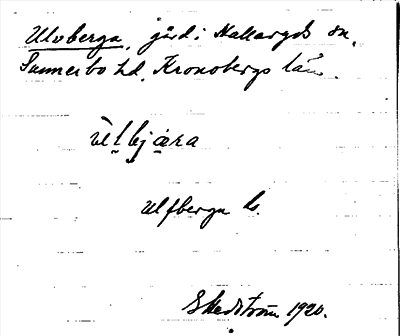 Ulvberga, gård i Hallaryds sn,
Sunnerbo hd, Kronobergs län.
Ulfberga
G Hedström 1920.